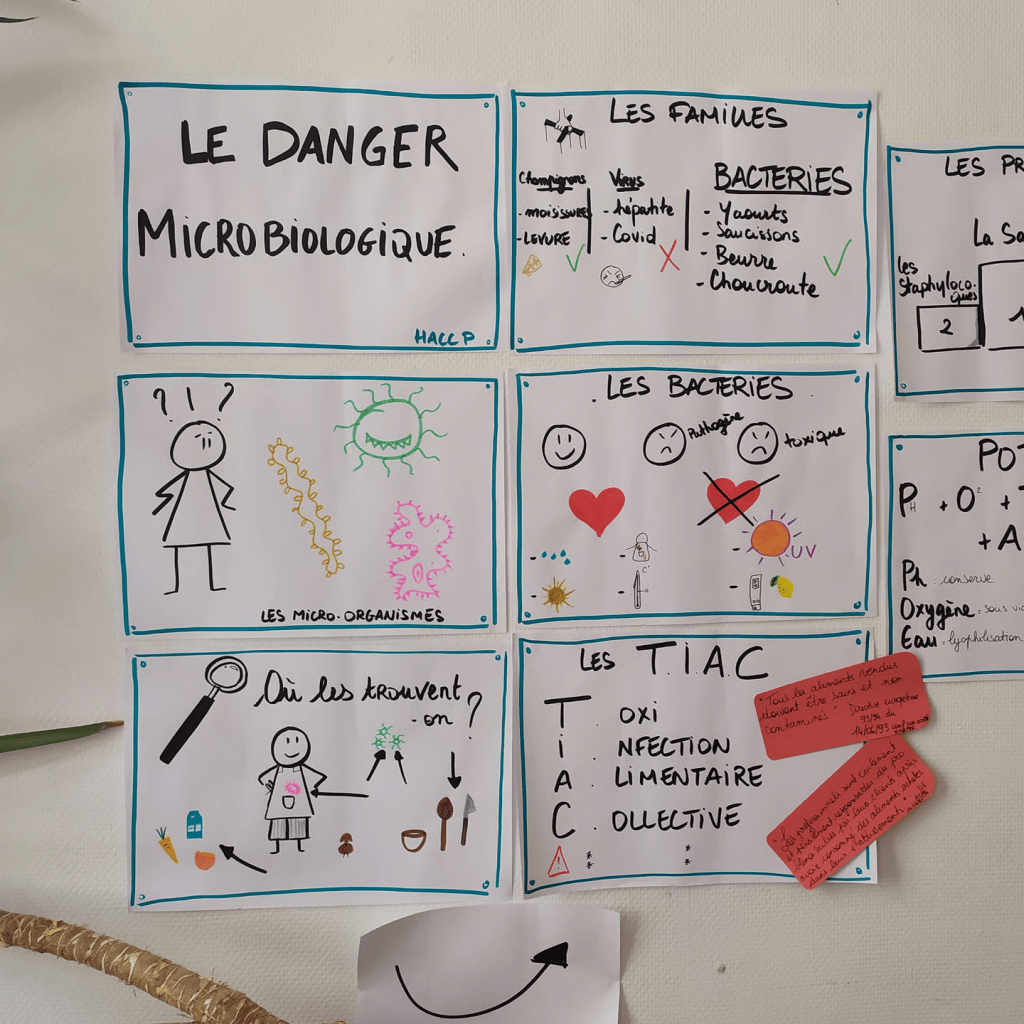 LE DANGER
MICROBIOLOGIQUE.
HACCP
LES FAMILLES
Champignons
- MOISISSURE
- LEVURE
Virus
- hépatite
- Covid
BACTERIES
- Yaourts
- Saucissons
- Beurre
- Choucroute
LES PR
La Sa
Les
Staphyloco-
ques
2
1
? ! ?
LES MICRO-ORGANISMES
. LES BACTERIES .
Pathogène
toxique
C°
UV
POT
PH + O² +
+ A
Ph : conserve
Oxygène = sous vi
Eau = lyophilisation
Où les trouvent
- on ?
LES T.I.A.C
T . OXI
I . NFECTION
A . LIMENTAIRE
C . OLLECTIVE
! * *
* *
"Tous les aliments vendus
doivent être sains et non
contaminés" Directive européenne
93/94 du
14/06/93
"Les professionnels sont
et pénalement responsables des
par leurs clients après
avoir consommé des aliments achetés
dans leur établissement"